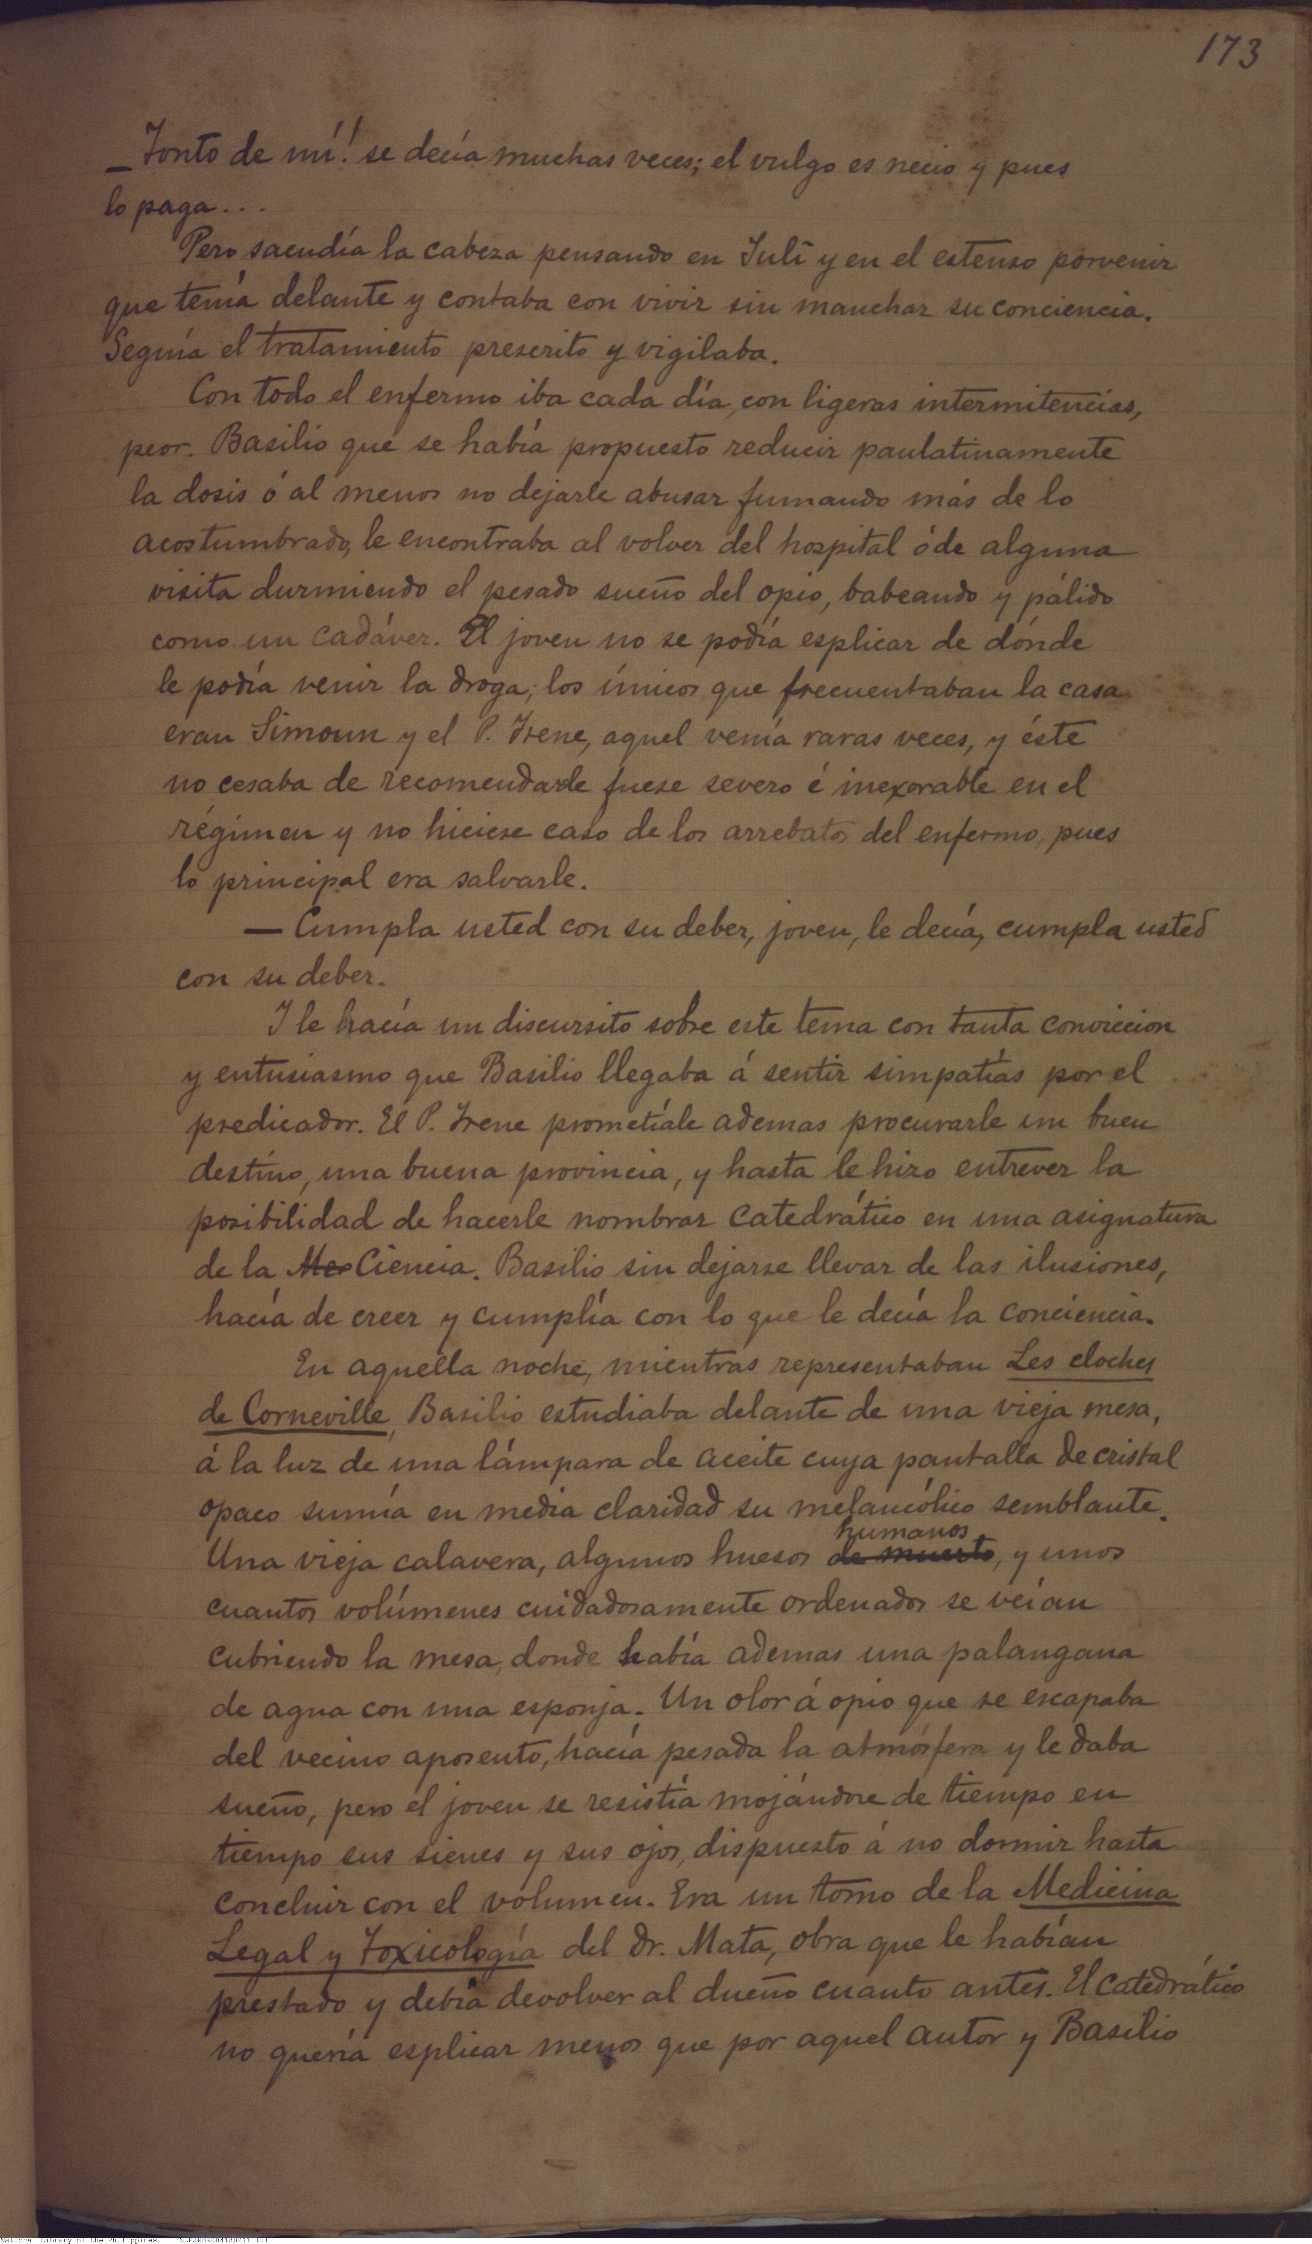 173
— Tonto de mí! se decía muchas veces; el vulgo es necio y pues
lo paga...
Pero sacudía la cabeza pensando en Julî y en el estenso porvenir
que tenía delante y contaba con vivir sin manchar su conciencia.
Seguía el tratamiento prescrito y vigilaba.
Con todo el enfermo iba cada día, con ligeras intermitencias,
peor. Basilio que se había propuesto reducir paulatinamente
la dosis ó al menos no dejarle abusar fumando más de lo
acostumbrado, le encontraba al volver del hospital ó de alguna
visita durmiendo el pesado sueño del opio, babeando y pálido
como un cadáver. El joven no se podía esplicar de dónde
le podía venir la droga; los únicos que frecuentaban la casa
eran Simoun y el P. Irene, aquel venía raras veces, y éste
no cesaba de recomendarle fuese severo é inexorable en el
régimen y no hiciese caso de los arrebatos del enfermo, pues
lo principal era salvarle.
— Cumpla usted con su deber, joven, le decía, cumpla usted
con su deber.
Y le hacía un discursito sobre este tema con tanta conviccion
y entusiasmo que Basilio llegaba á sentir simpatías por el
predicador. El P. Irene prometíale ademas procurarle un buen
destino, una buena provincia, y hasta le hizo entrever la
posibilidad de hacerle nombrar catedrático en una asignatura
de la Me Ciencia. Basilio sin dejarse llevar de las ilusiones,
hacía de creer y cumplía con lo que le decía la conciencia.
En aquella noche, mientras representaban Les cloches
de Corneville, Basilio estudiaba delante de una vieja mesa,
á la luz de una lámpara de aceite cuya pantalla de cristal
opaco sumía en media claridad su melancólico semblante.
humanos
Una vieja calavera, algunos huesos de muerto, y unos
cuantos volúmenes cuidadosamente ordenados se veían
cubriendo la mesa, donde había ademas una palangana
de agua con una esponja. Un olor á opio que se escapaba
del vecino aposento, hacía pesada la atmósfera y le daba
sueño, pero el joven se resistía mojándose de tiempo en
tiempo sus sienes y sus ojos, dispuesto á no dormir hasta
concluir con el volumen. Era un tomo de la Medicina
Legal y Toxicología del Dr. Mata, obra que le habían
prestado y debía devolver al dueño cuanto antes. El catedrático
no quería esplicar menos que por aquel autor y Basilio